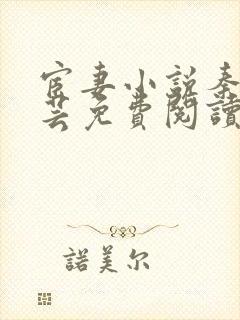 宦妻小说秦
芸免費閱讀
諾美尔